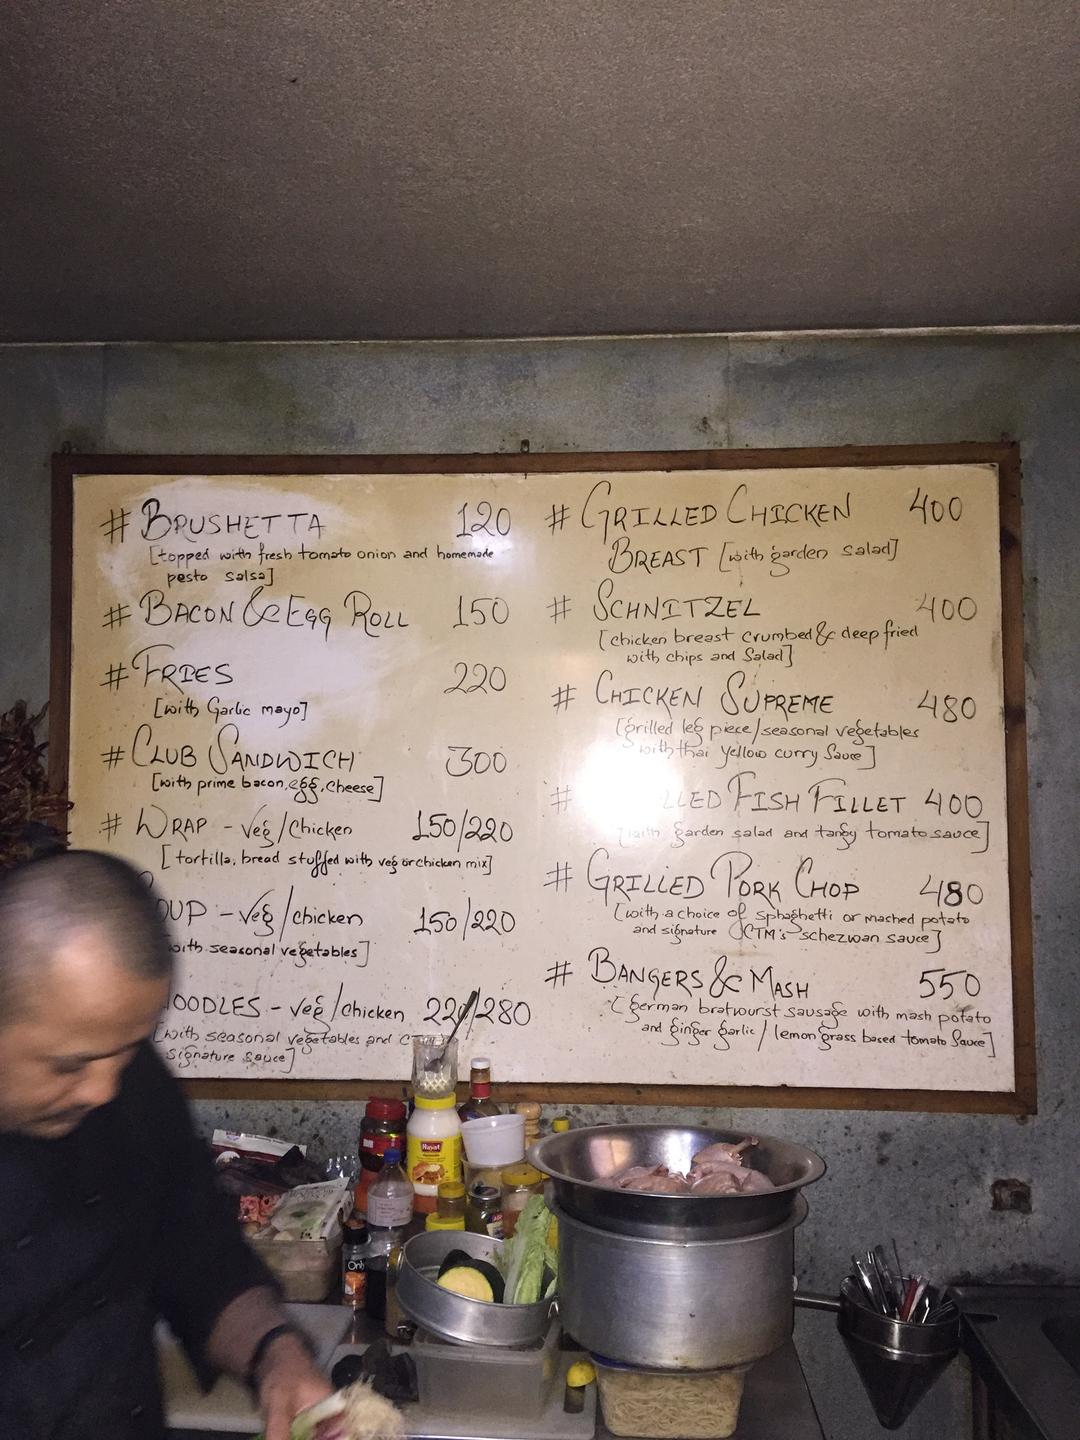 # BRUSHETTA 120
[topped with fresh tomato onion and homemade
pesto salsa]
# BACON & EGG ROLL 150
# FRIES 220
[with Garlic mayo]
# CLUB SANDWICH 300
[with prime bacon, egg, cheese]
# WRAP - veg/chicken 150/220
[tortilla, bread stuffed with veg or chicken mix]
OUP - veg/chicken 150/220
with seasonal vegetables]
OODLES - veg/chicken 220/280
[with seasonal vegetables and
signature sauce]
# GRILLED CHICKEN 400
BREAST [with garden salad]
# SCHNITZEL 400
[chicken breast crumbed & deep fried
with chips and Salad]
# CHICKEN SUPREME 480
[grilled leg piece/seasonal vegetables
with thai yellow curry Sauce]
# LLED FISH FILLET 400
[with garden salad and tangy tomato sauce]
# GRILLED PORK CHOP 480
[with a choice of sphaghetti or mached potato
and signature CTM's schezwan sauce]
# BANGERS & MASH 550
[german bratwurst sausage with mash potato
and ginger garlic/lemon grass based tomato Sauce]
Only